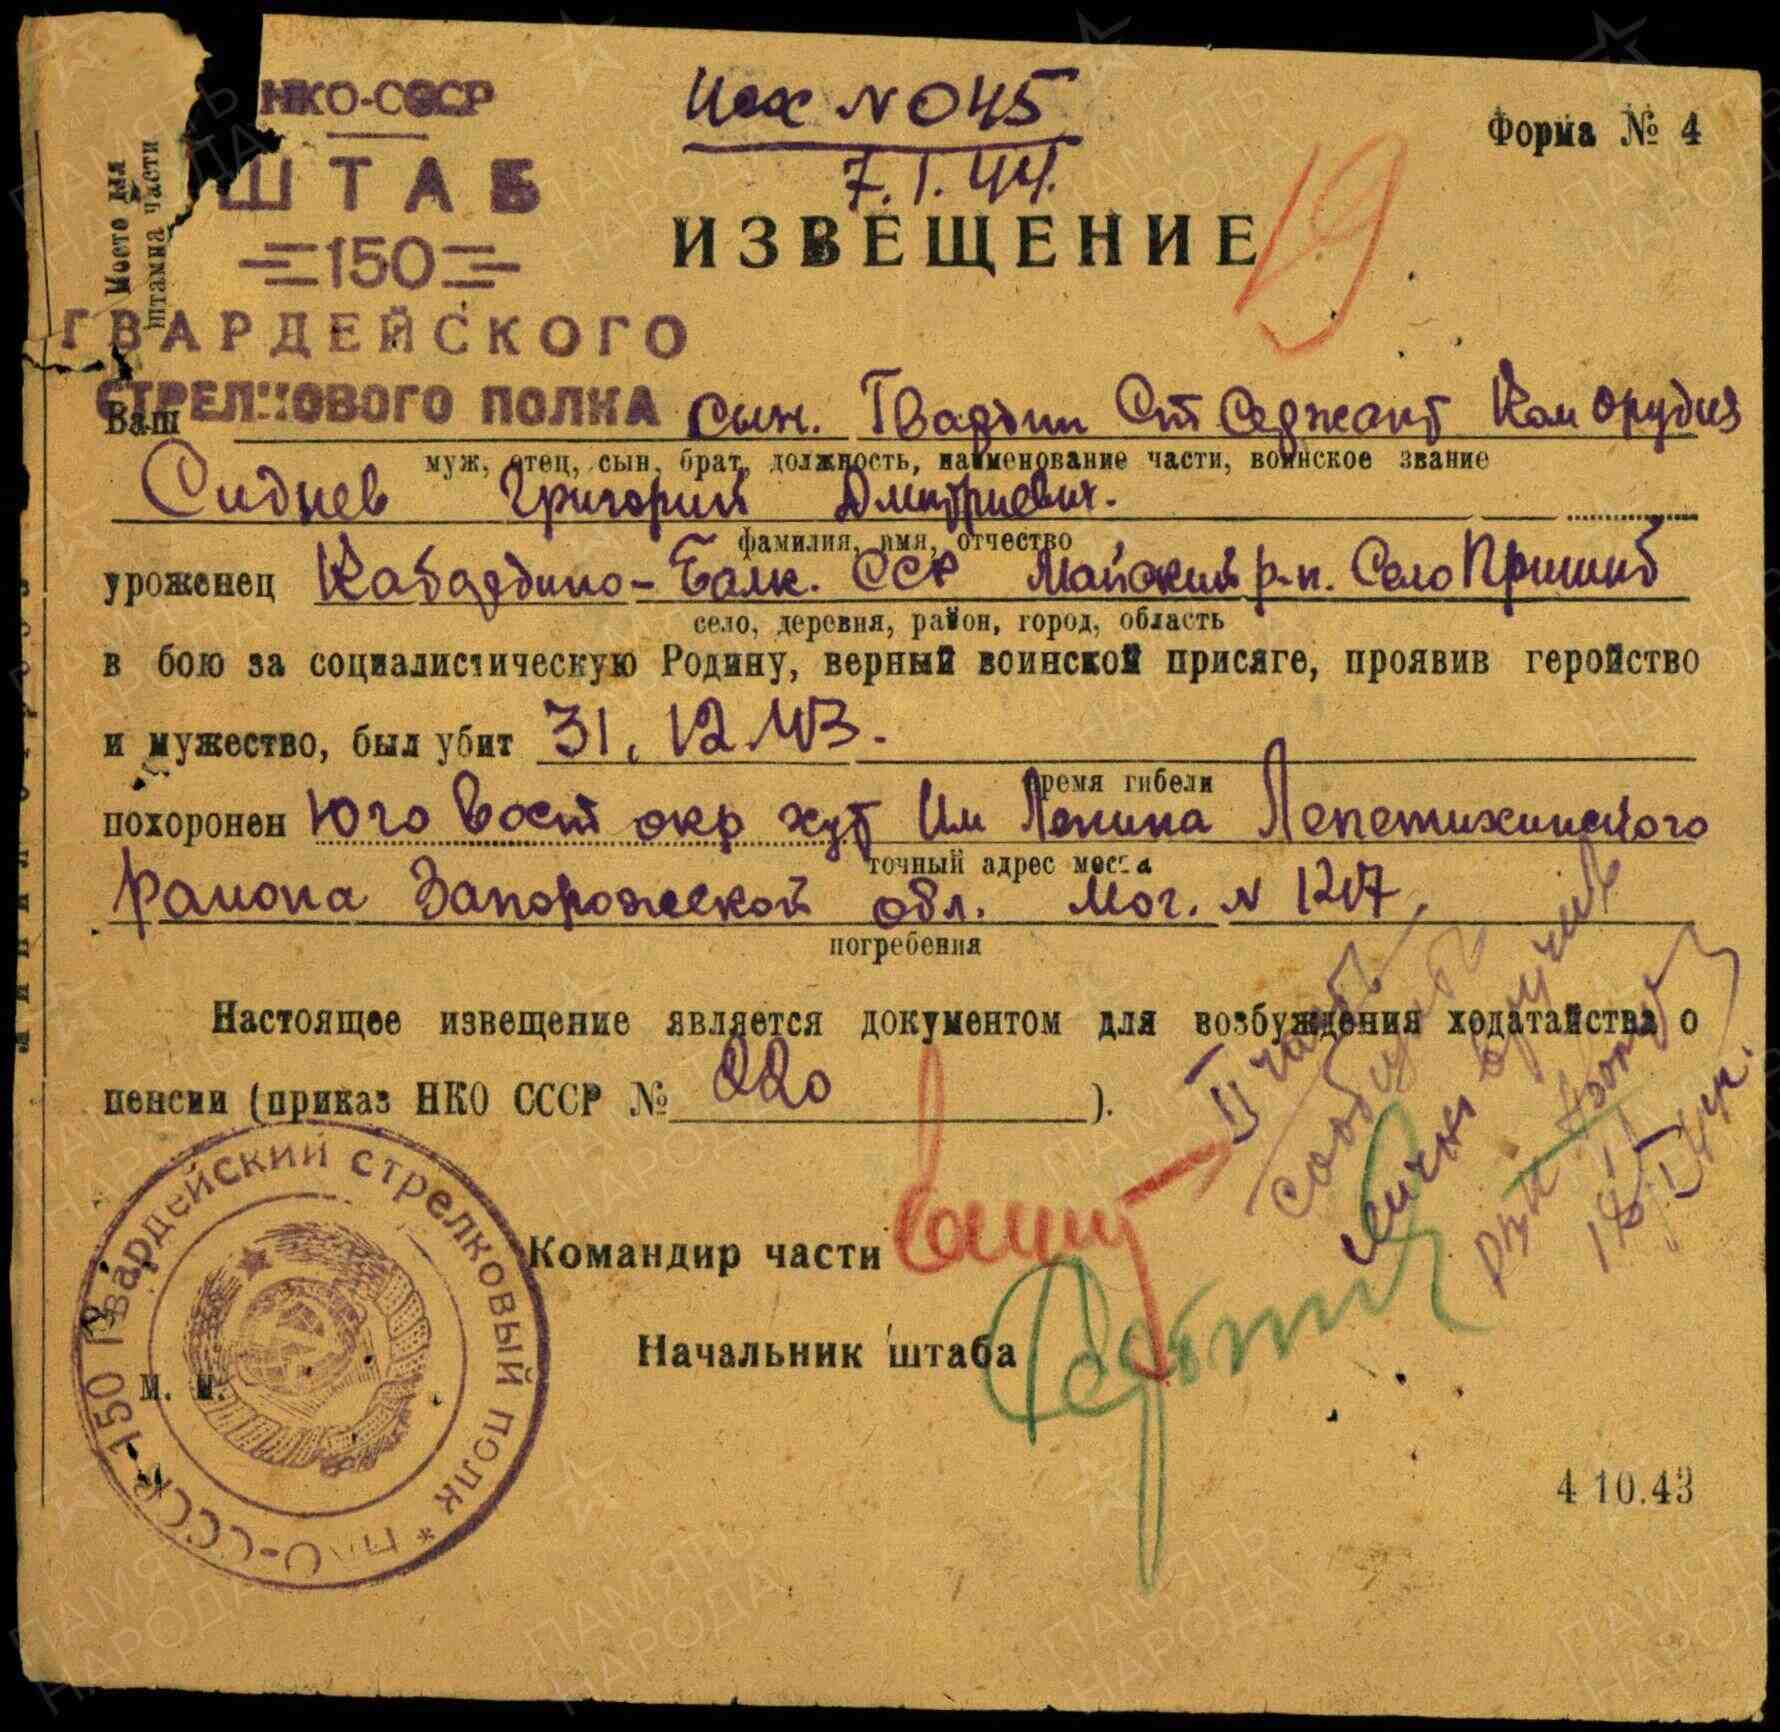 НКО-СССР
ШТАБ
150
ГВАРДЕЙСКОГО
СТРЕЛКОВОГО ПОЛКА
Место для
штампа части
Исх № 045
7.I.44.
Форма № 4
ИЗВЕЩЕНИЕ
19
Ваш сын. Гвардии Ст Седжант Ком Орудия
муж, отец, сын, брат, должность, наименование части, воинское звание
Сиднев Григорий Дмитриевич.
фамилия, имя, отчество
уроженец Кабардино-Балк. ССР Майский р-н. Село Пришиб
село, деревня, район, город, область
в бою за социалистическую Родину, верный воинской присяге, проявив геройство
и мужество, был убит 31.12.43.
время гибели
похоронен Юго Вост окр хут Им Ленина Лепетихинского
точный адрес места
района Запорожской обл. Мог. N 1217.
погребения
Настоящее извещение является документом для возбуждения ходатайства о
пенсии (приказ НКО СССР № 220 ).
II часть
сообщить
лично вручить
Командир части
Начальник штаба
М. П.
НКО-СССР 150 Гвардейский стрелковый полк *
4 10.43
ПАМЯТЬ
НАРОДА